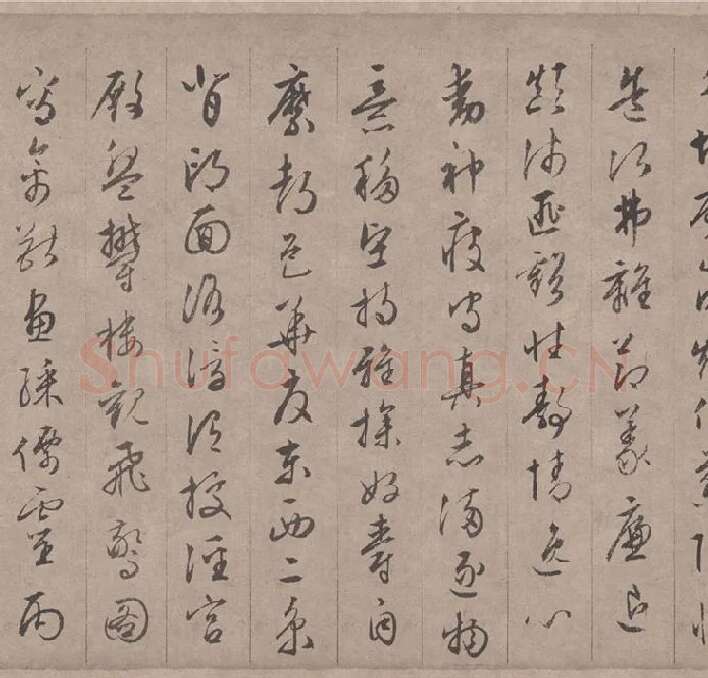 造次弗離節義廉退
顛沛匪虧性靜情逸心
動神疲守真志滿逐物
意移堅持雅操好爵自
縻都邑華夏東西二京
背邙面洛浮渭據涇宮
殿盤鬱樓觀飛驚圖
寫禽獸畫綵僊靈丙
Shufawang.CN